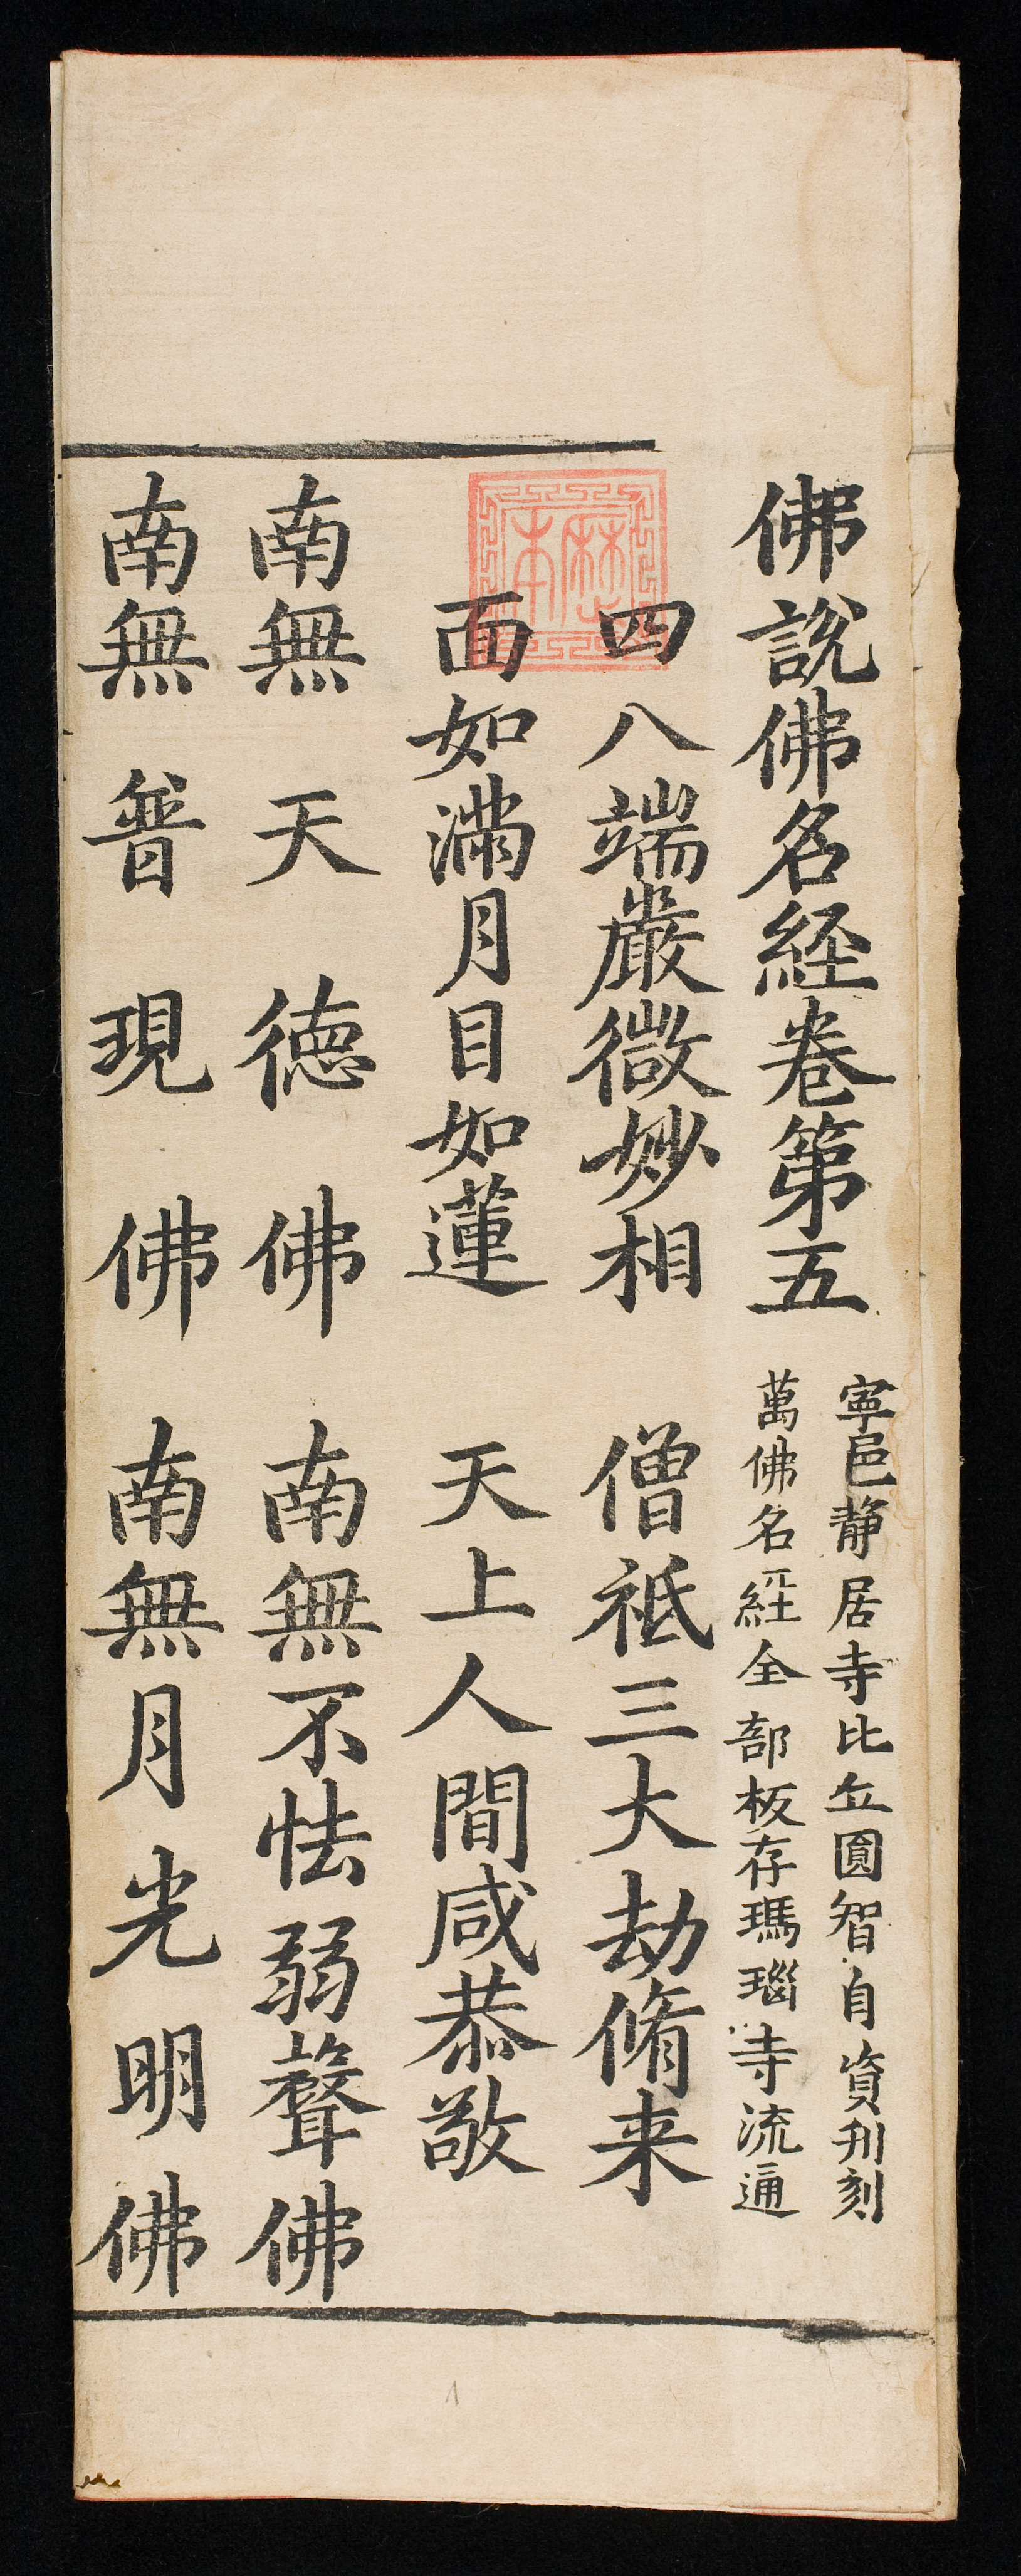 佛說佛名経卷第五
寕邑静居寺比丘圓智自資刋刻
萬佛名経全部板存瑪瑙寺流通
四八端嚴微妙相 僧祗三大劫脩来
面如滿月目如蓮 天上人間咸恭敬
南無天德佛 南無不怯弱聲佛
南無普現佛 南無月光明佛